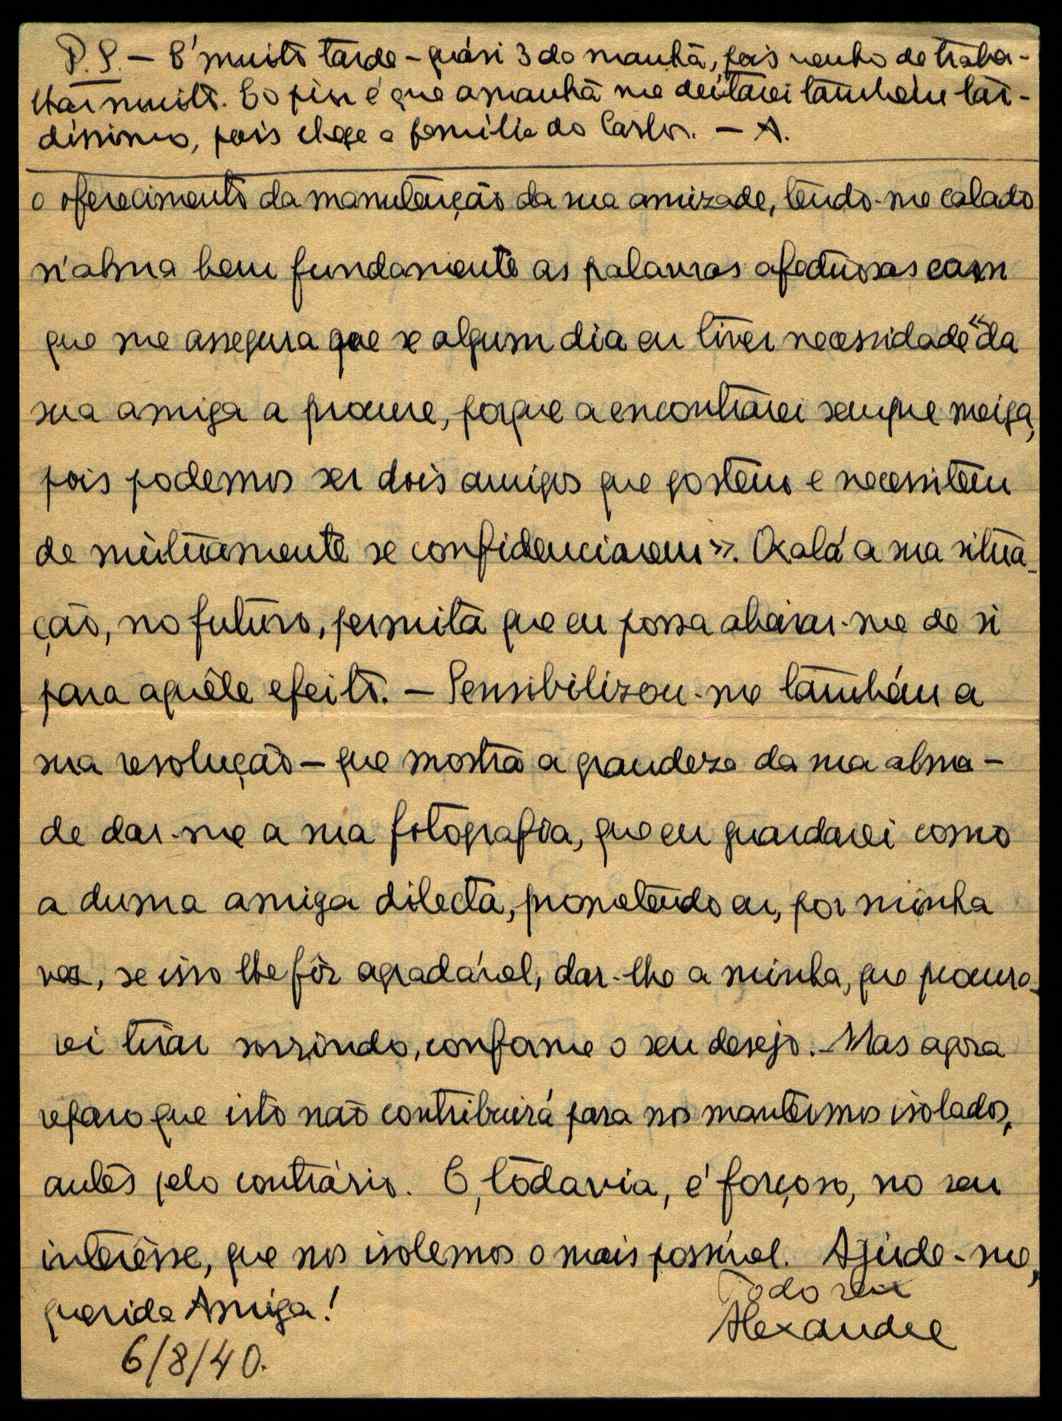 P.S. — É muito tarde – quási 3 da manhã, pois venho de traba-
lhar muito. E o pior é que amanhã me deitarei também tar-
díssimo, pois chega a família do Carlos. — A.
o oferecimento da manutenção da sua amizade, tendo-me calado
n'alma bem fundamente as palavras afectuosas com
que me assegura que se algum dia eu tiver necessidade «da
sua amiga a procure, porque a encontrarei sempre meiga,
pois podemos ser dois amigos que gostem e necessitem
de mùtuamente se confidenciarem». Oxalá a sua situa-
ção, no futuro, permita que eu possa abeirar-me de si
para aquêle efeito. — Sensibilizou-me também a
sua resolução — que mostra a grandeza da sua alma —
de dar-me a sua fotografia, que eu guardarei como
a duma amiga dilecta, prometendo eu, por minha
vez, se isso lhe fôr agradável, dar-lhe a minha, que procura-
rei tirar sorrindo, conforme o seu desejo. – Mas agora
reparo que isto não contribuirá para nos mantermos isolados,
antes pelo contrário. E, todavia, é forçoso, no seu
interêsse, que nos isolemos o mais possível. Ajude-me,
querida Amiga!
Todo seu
Alexandre
6/8/40.